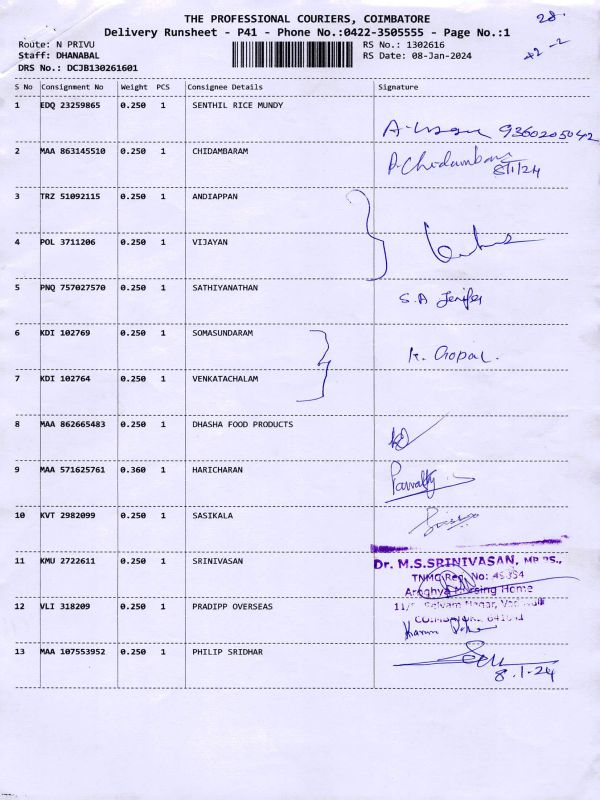 THE PROFESSIONAL COURIERS, COIMBATORE
28
Delivery Runsheet - P41 - Phone No.:0422-3505555 - Page No.:1
Route: N PRIVU
RS No.: 1302616
+2 -2
Staff: DHANABAL
RS Date: 08-Jan-2024
DRS No.: DCJB130261601
S No Consignment No Weight PCS Consignee Details Signature
1 EDQ 23259865 0.250 1 SENTHIL RICE MUNDY
9360205042
2 MAA 863145510 0.250 1 CHIDAMBARAM P.Chidambaram
8/1/24
3 TRZ 51092115 0.250 1 ANDIAPPAN
4 POL 3711206 0.250 1 VIJAYAN
5 PNQ 757027570 0.250 1 SATHIYANATHAN S.A Jenifer
6 KDI 102769 0.250 1 SOMASUNDARAM K. Gopal.
7 KDI 102764 0.250 1 VENKATACHALAM
8 MAA 862665483 0.250 1 DHASHA FOOD PRODUCTS
9 MAA 571625761 0.360 1 HARICHARAN
10 KVT 2982099 0.250 1 SASIKALA
11 KMU 2722611 0.250 1 SRINIVASAN Dr. M.S.SRINIVASAN, MB BS.,
TNMC Reg. No:
Nursing Home
12 VLI 318209 0.250 1 PRADIPP OVERSEAS
13 MAA 107553952 0.250 1 PHILIP SRIDHAR
8.1.24